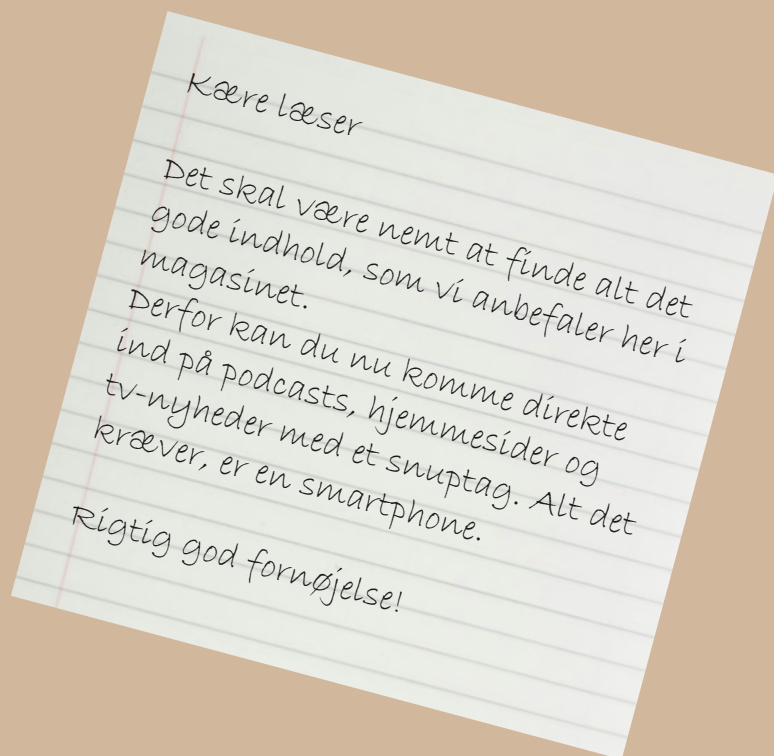 Kære læser
Det skal være nemt at finde alt det
gode indhold, som vi anbefaler her i
magasinet.
Derfor kan du nu komme direkte
ind på podcasts, hjemmesider og
tv-nyheder med et snuptag. Alt det
kræver, er en smartphone.
Rigtig god fornøjelse!